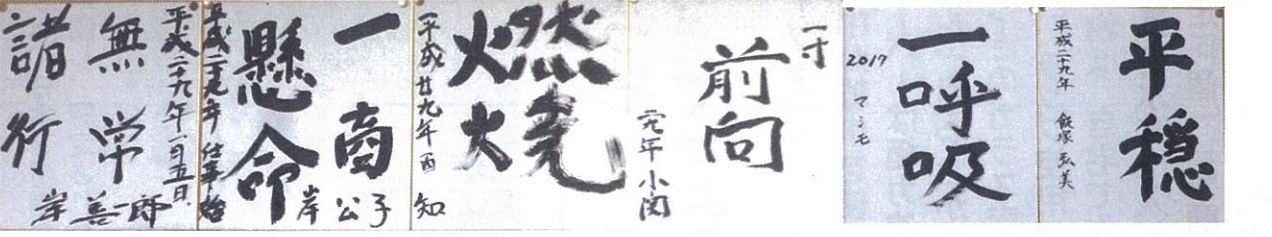 平穏
平成二十九年 飯塚 弘美
一呼吸
2017
マシモ
一寸
前向
二九年 小関
燃焼
平成廿九年酉 知
一商
懸命
岸公子
平成二十九年 仕事始
諸行
無常
平成二十九年一月五日
岸善一郎